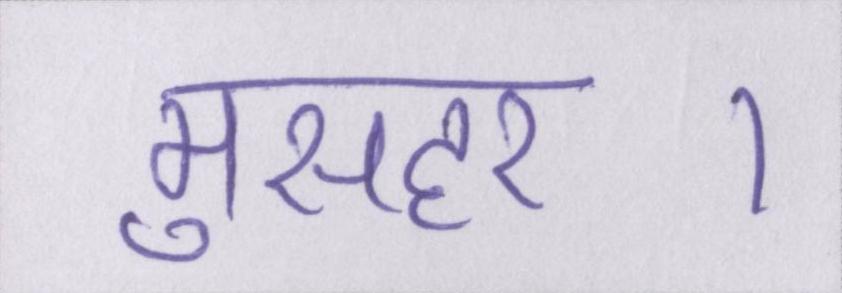 मुसहर ।